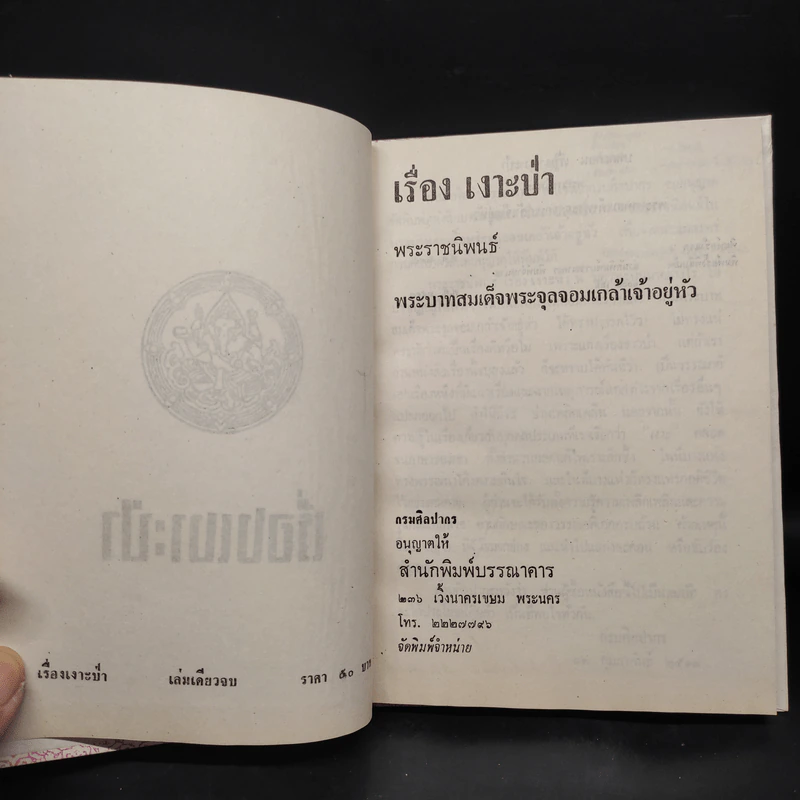 เรื่องเงาะป่า เล่มเดียวจบ ราคา ๕๐ บาท
เรื่อง เงาะป่า
พระราชนิพนธ์
พระบาทสมเด็จพระจุลจอมเกล้าเจ้าอยู่หัว
กรมศิลปากร
อนุญาตให้
สำนักพิมพ์บรรณาคาร
๒๓๖ เวิ้งนาครเขษม พระนคร
โทร. ๒๒๒๗๗๙๖
จัดพิมพ์จำหน่าย